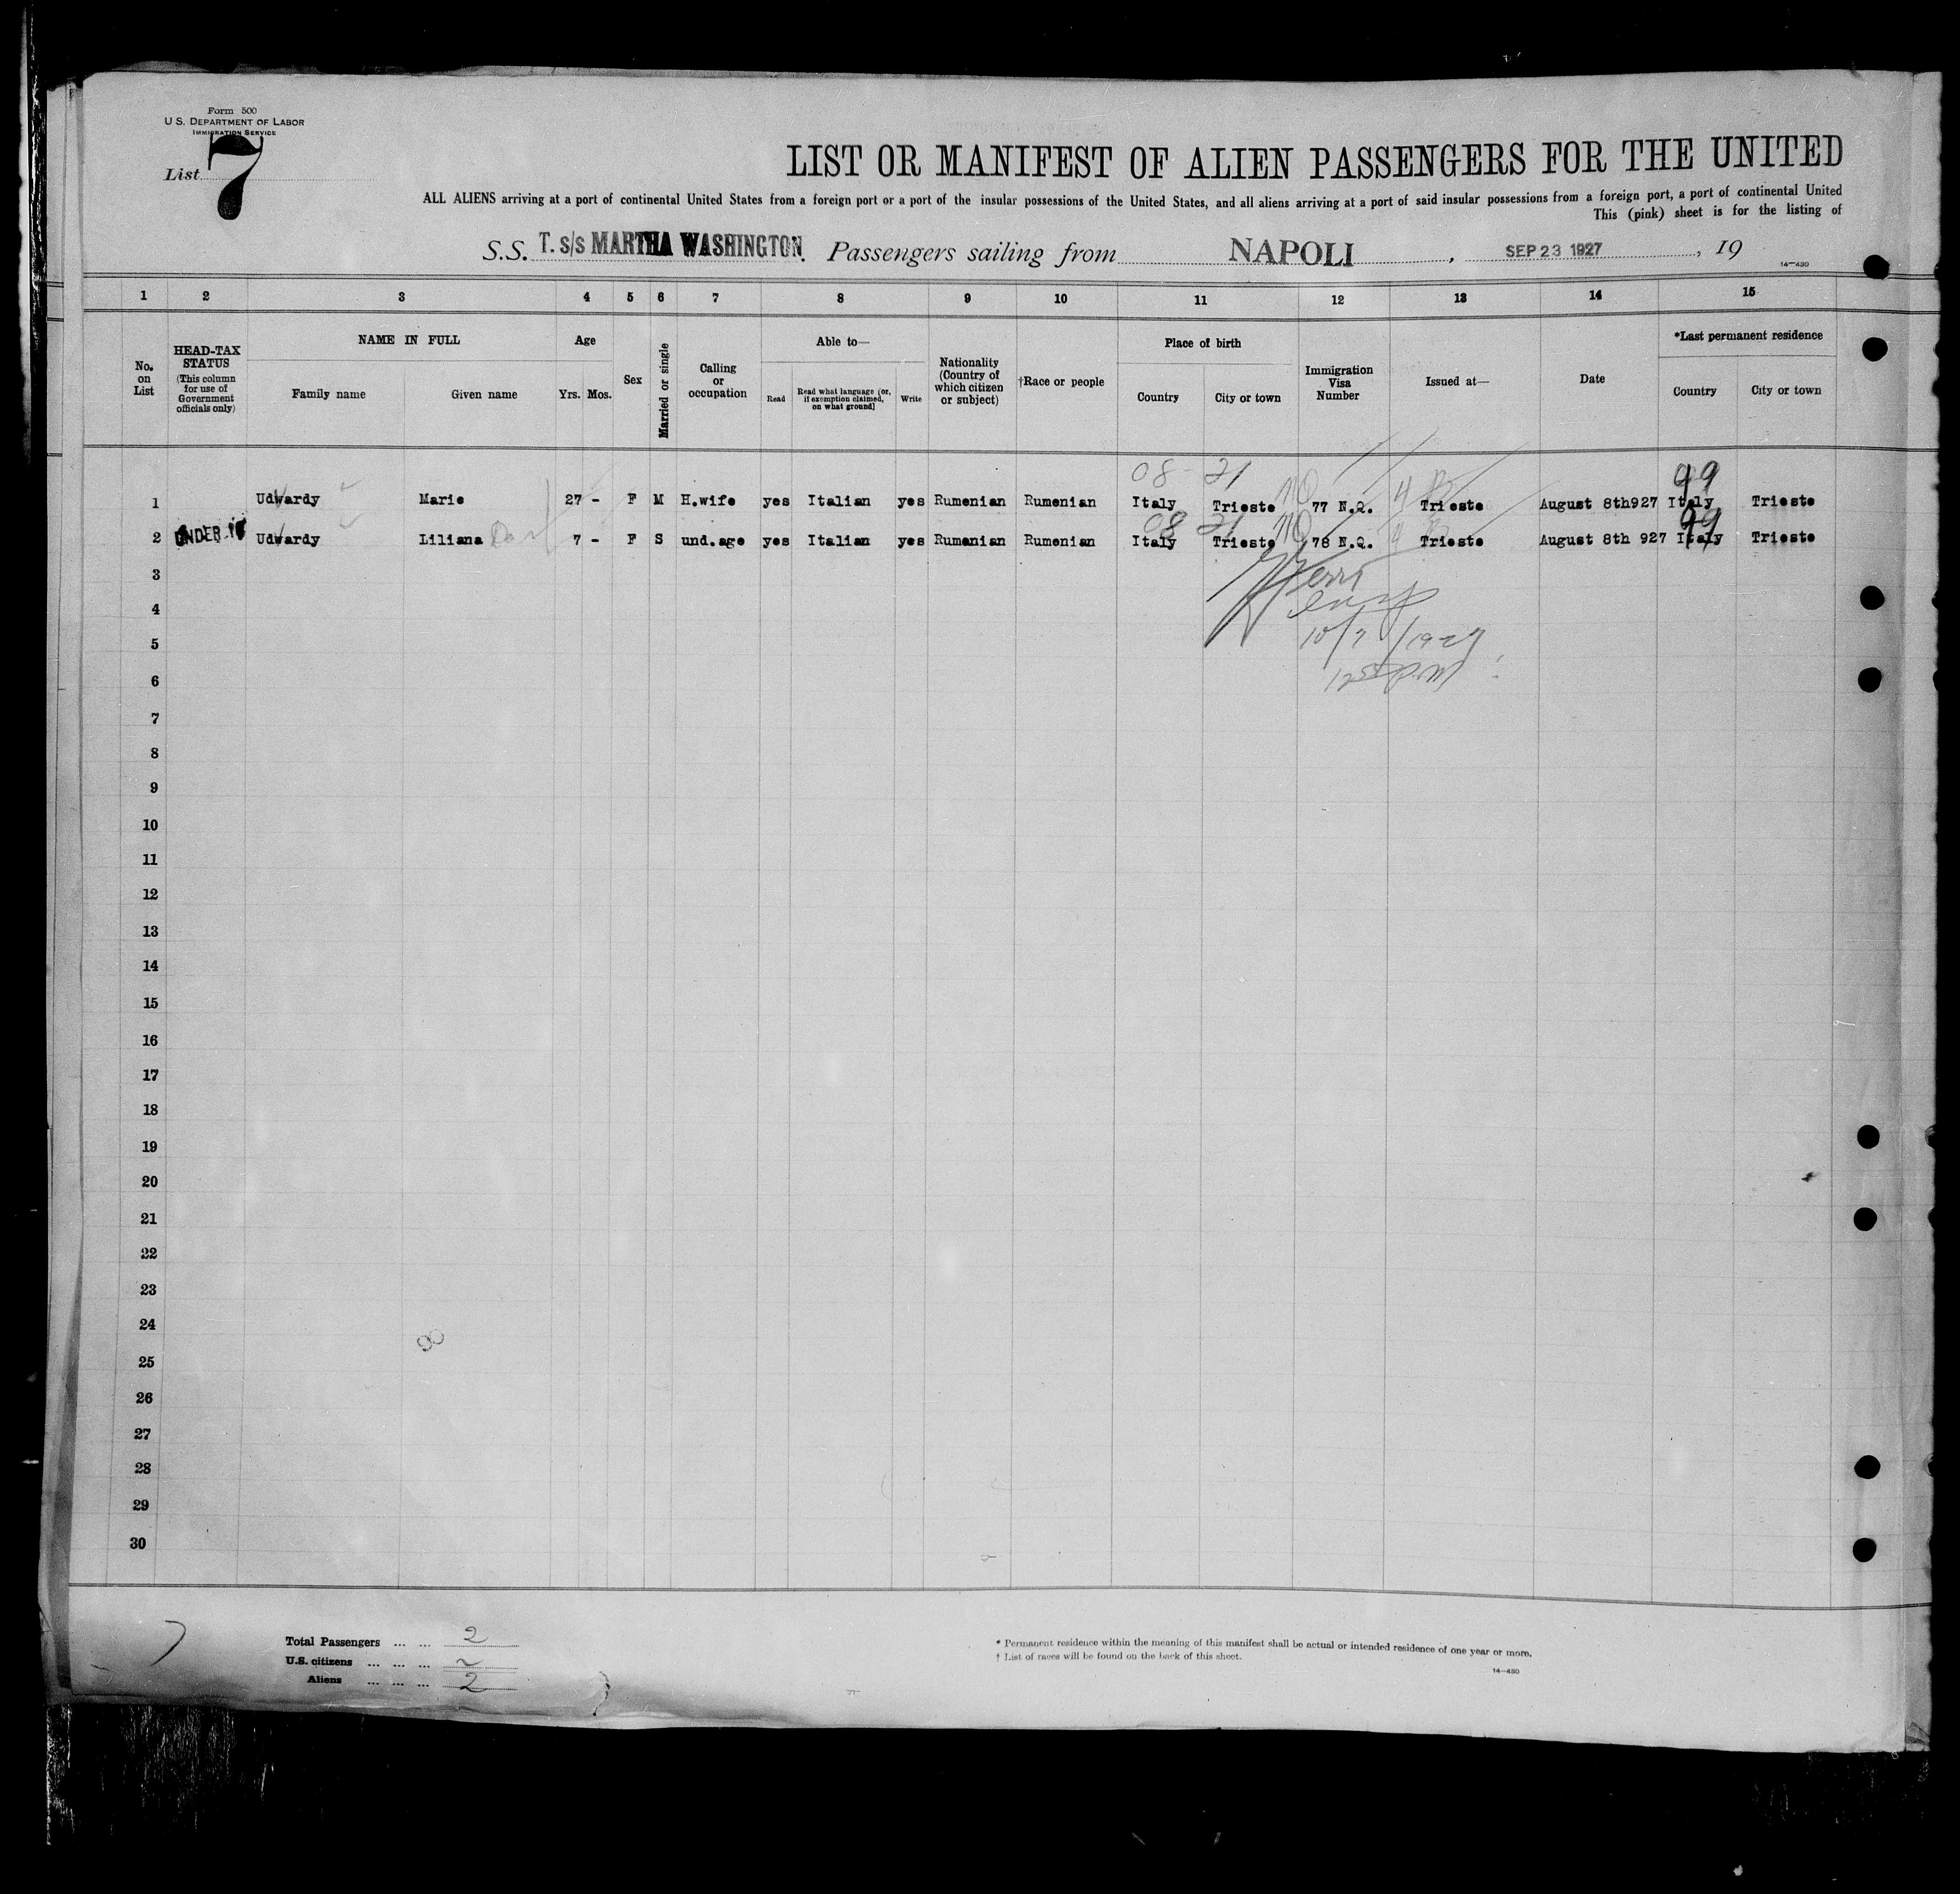 Form 500
U.S. DEPARTMENT OF LABOR
IMMIGRATION SERVICE
List 7
LIST OR MANIFEST OF ALIEN PASSENGERS FOR THE UNITED
ALL ALIENS arriving at a port of continental United States from a foreign port or a port of the insular possessions of the United States, and all aliens arriving at a port of said insular possessions from a foreign port, a port of continental United
This (pink) sheet is for the listing of
S.S. T. s/s MARTHA WASHINGTON. Passengers sailing from NAPOLI, SEP 23 1927, 19
14—430
1 2 3 4 5 6 7 8 9 10 11 12 13 14 15
No. on List
HEAD-TAX STATUS (This column for use of Government officials only)
NAME IN FULL
Family name Given name
Age
Yrs. Mos.
Sex
Married or single
Calling or occupation
Able to—
Read Read what language (or, if exemption claimed, on what ground) Write
Nationality (Country of which citizen or subject)
†Race or people
Place of birth
Country City or town
Immigration Visa Number
Issued at—
Date
*Last permanent residence
Country City or town
08 - 21 99
1 Udwardy Marie 27 - F M H.wife yes Italian yes Rumenian Rumenian Italy Trieste 77 N.Q. Trieste August 8th927 Italy Trieste
08 21 99
2 UNDER 16 Udwardy Liliana 7 - F S und.age yes Italian yes Rumenian Rumenian Italy Trieste 78 N.Q. Trieste August 8th 927 Italy Trieste
3
4
5 10/7/1927
6
7
8
9
10
11
12
13
14
15
16
17
18
19
20
21
22
23
24
25
26
27
28
29
30
Total Passengers ... ... 2
U.S. citizens ... ... ... ~
Aliens ... ... ... 2
* Permanent residence within the meaning of this manifest shall be actual or intended residence of one year or more.
† List of races will be found on the back of this sheet.
14—430